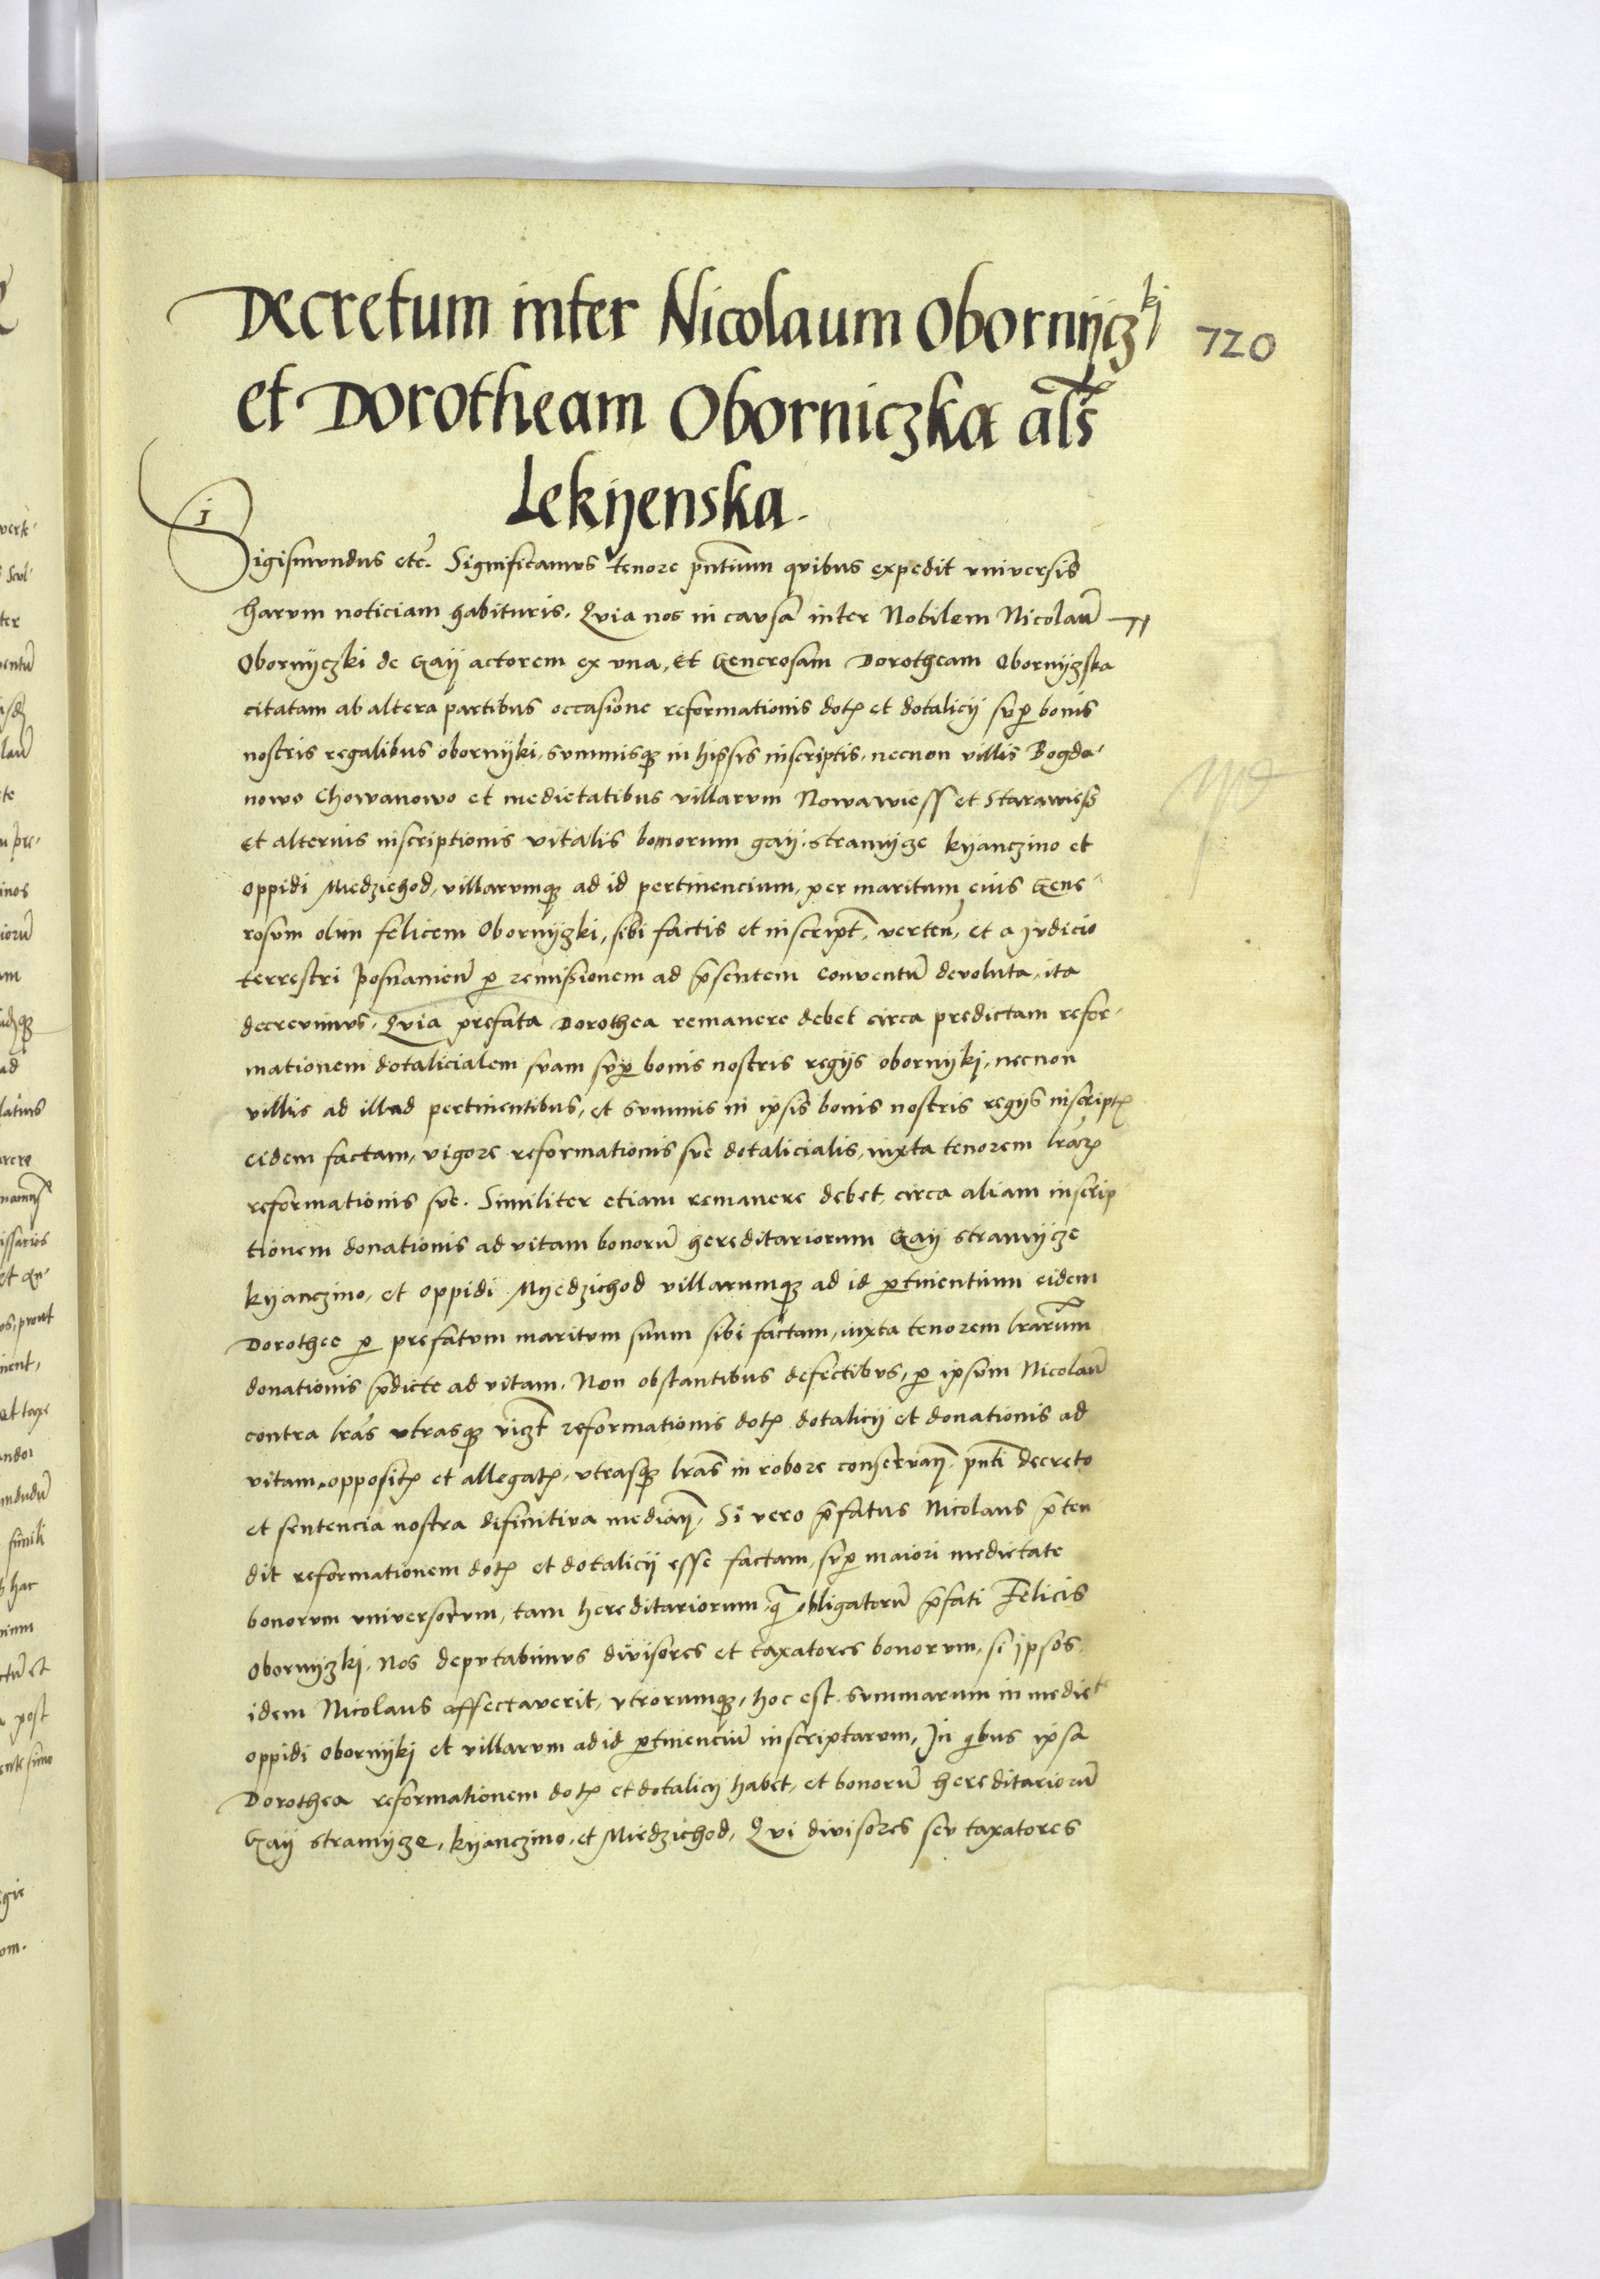 Decretum inter Nicolaum Obornyczkj
720
et Dorotheam Oborniczka als̃
Lekyenska.
Sigismundus etc̃. Significamus tenore pñtium quibus expedit vniversis
harum noticiam habituris. Qvia nos in cavsa inter Nobilem Nicolaũ
Obornyczki de Gaÿ actorem ex vna, et Generosam Dorotheam Obornyzska
citatam ab altera partibus occasione reformationis dotꝭ et dotalicij suꝑ bonis
nostris regalibus obornyki, summisqꝫ in hipsis inscriptis, necnon villis Bogda-
nowo Chowanowo et medietatibus villarum Nowawiess et Starawiess
et alterius inscriptionis vitalis bonorum gaÿ. stramyze kyanczino et
oppidi Miedzichod, villarumqꝫ ad id pertinencium, per maritum eius Gene-
rosum olim felicem Obornyzki, sibi factis et inscript̃, verteñ, et a judicio
terrestri Posnanieñ ꝑ remissionem ad p̃sentem conventũ devoluta, ita
decrevimus. Qvia prefata Dorothea remanere debet circa predictam refor-
mationem dotalicialem suam suꝑ bonis nostris regijs obornykj, necnon
villis ad illud pertinentibus, et summis in ipsis bonis nostris regijs inscriptꝭ
eidem factam, vigore reformationis sue dotalicialis, iuxta tenorem lrãꝝ
reformationis sue. Similiter etiam remanere debet, circa aliam inscrip
tionem donationis ad vitam bonorũ hereditariorum Gaÿ stramycze
kyanczino, et oppidi Myedzichod villarumqꝫ ad id ꝑtinentium eidem
Dorothee ꝑ prefatum maritum suum sibi factam, iuxta tenorem lrãrum
donationis p̃dicte ad vitam. Non obstantibus defectibus, ꝑ ipsum Nicolaũ
contra lrãs vtrasqꝫ vizt̃ reformationis dotꝭ dotalicij et donationis ad
vitam, oppositꝭ et allegatꝭ, vtrasqꝫ lrãs in robore conservañ. pñti decreto
et sentencia nostra difinitiva mediañ, Si vero p̃fatus Nicolaus p̃ten
dit reformationem dotꝭ et dotalicij esse factam, suꝑ maiori medietate
bonorum vniversorum, tam hereditariorum q̃ obligatorũ p̃fati Felicis
Obornyzkj. Nos deputabimus divisores et taxatores bonorum, si ipsos
idem Nicolaus affectaverit, vtrorumqꝫ, hoc est summarum in mediete
oppidi obornykj et villarum ad id ꝑtinenciũ inscriptarum, In qibus ipsa
Dorothea reformationem dotꝭ et dotalicij habet, et bonorũ hereditariorũ
Gaÿ stramycze, kyanczino, et Miedzichod, Qvi divisores sev taxatores